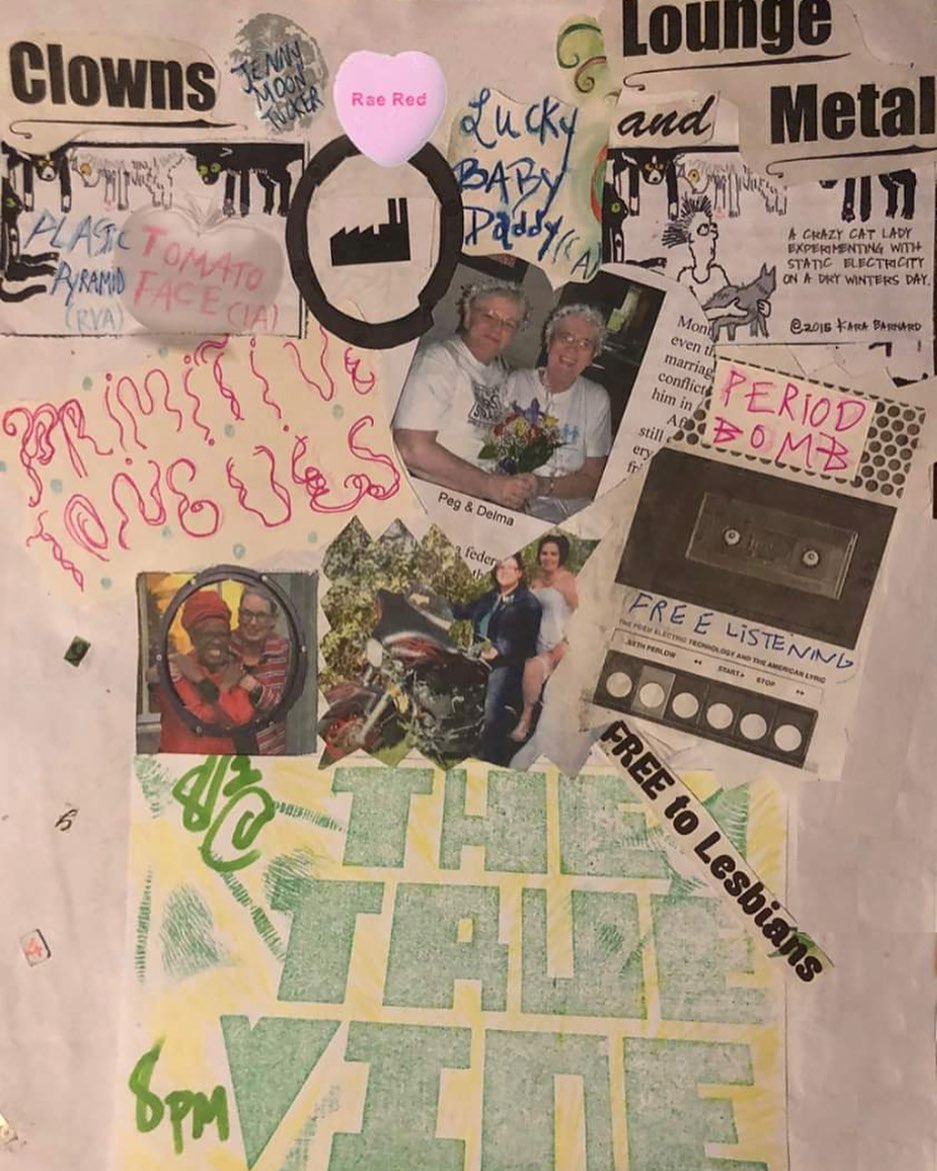 Clowns
Lounge
and
Metal
JENNY
MOON
TUCKER
Rae Red
Lucky
BABY
Daddy (CA)
PLASTIC
PYRAMID
(RVA)
TOMATO
FACE (IA)
A CRAZY CAT LADY
EXPERIMENTING WITH
STATIC ELECTRICITY
ON A DRY WINTERS DAY.
©2015 KARA BARNARD
PRIMITIVE
TONGUES
Mon
even th
marriag
conflict
him in
Af
still
ery
Peg & Delma
a feder
th
PERIOD
BOMB
FREE LISTENING
THE POEM ELECTRIC TECHNOLOGY AND THE AMERICAN LYRIC
SETH PERLOW
START
STOP
FREE to Lesbians
THE
TRUE
VINE
8PM
9
4